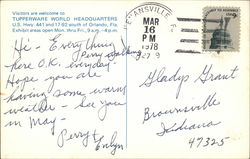 Visitors are welcome to
TUPPERWARE WORLD HEADQUARTERS
U.S. Hwy. 441 and 17-92 south of Orlando, Fla.
Exhibit areas open Mon. thru Fri., 9 a.m.-4 p.m.
Hi - Everything
here O.K. Perry
Hope you are
having some warm
weather - See you
in May -
Perry &
Evelyn
MAR
16
PM
1978
Gladys Grant
Brownsville
Indiana
47325